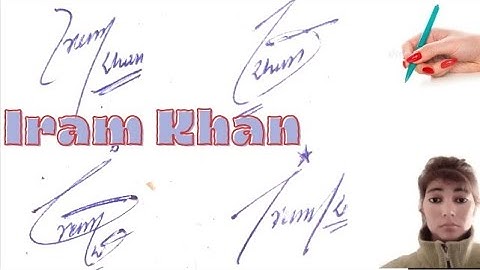 Iram Khan
I Khan
Iram Khan
Iram K
Iram K